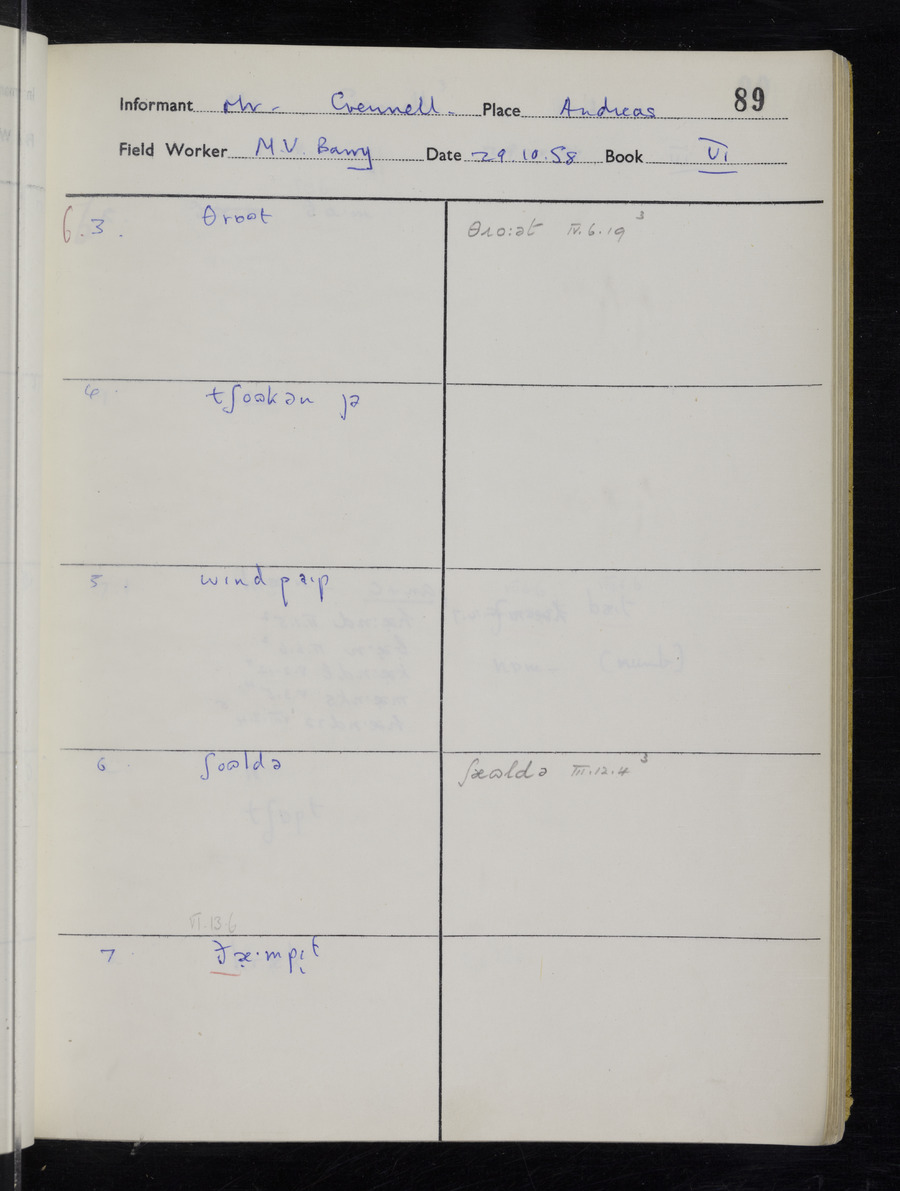 89
Informant Mr. Crennell. Place Andreas
Field Worker M.V. Barry Date 29.10.58 Book VI
6.3. θroət θɹo:ət IV.6.19³
4. tʃoəkən jə
5. wɪnd
6 ʃoəldə ʃəoldə III.12.4³
VI.13 6
7.